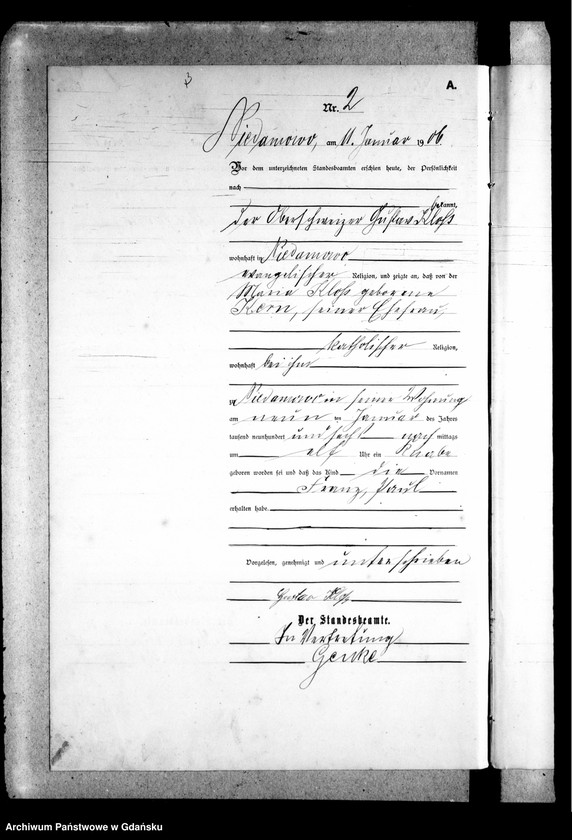 3
A.
Nr. 2
Niedamowo, am 11. Januar 1906.
Vor dem unterzeichneten Standesbeamten erschien heute, der Persönlichkeit
nach
bekannt,
der Oberschweizer Gustav Kloß
wohnhaft in Niedamowo
evangelischer Religion, und zeigte an, daß von der
Maria Kloß geborene
Korn, seiner Ehefrau,
katholischer Religion,
wohnhaft bei ihm
zu Niedamowo in seine Wohnung
am neun ten Januar des Jahres
tausend neunhundert und sechs nach mittags
um elf Uhr ein Knabe
geboren worden sei und daß das Kind die Vornamen
Franz, Paul
erhalten habe.
Vorgelesen, genehmigt und unterschrieben
Gustav Kloß
Der Standesbeamte.
In Vertretung
Archiwum Państwowe w Gdańsku